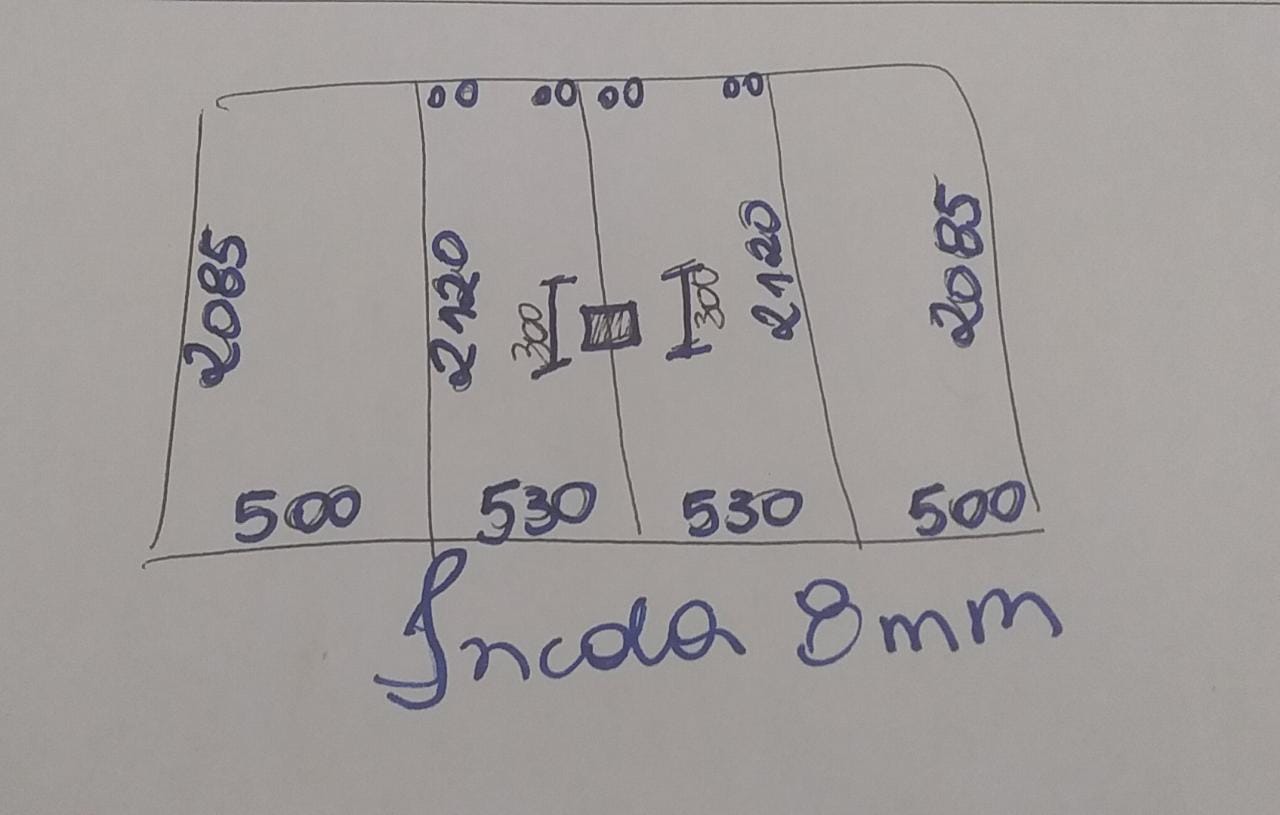 2085
2120
300
300
2120
2085
500 530 530 500
Incola 8mm